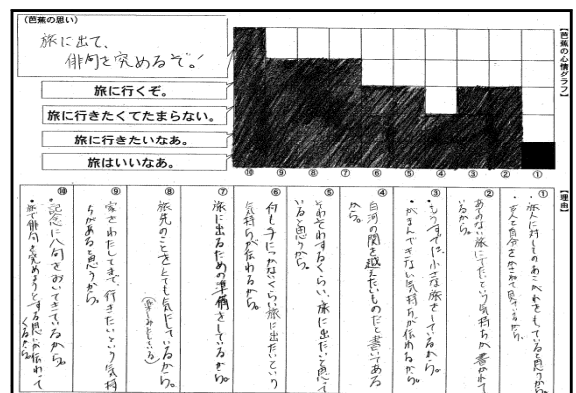 (芭蕉の思い)
旅に出て、
俳句を究めるぞ。!
旅に行くぞ。
旅に行きたくてたまらない。
旅に行きたいなあ。
旅はいいなあ。
【芭蕉の心情グラフ】
⑩ ⑨ ⑧ ⑦ ⑥ ⑤ ④ ③ ② ①
【理由】
①
・旅人に対してのあこがれをもっていると思うから。
②
あてのない旅にでたという気持ちが書かれて
いるから。
③
・もうすでに小さな旅をしているから。
・がまんできない気持ちが伝わるから。
④
白河の関を越えたいものだと書いてある
から。
⑤
そわそわするくらい、旅に出たいと思って
いると思うから。
⑥
何も手につかないくらい旅に出たいという
気持ちが伝わるから。
⑦
旅に出るための準備をしているから。
⑧
旅先のことをとても気にしているから。
⑨
家をわたしてまで、行きたいという気持
ちがあると思うから。
⑩
・記念に八句をおいてきているから。
・旅で俳句を究めようとする思いが伝わって
くるから。